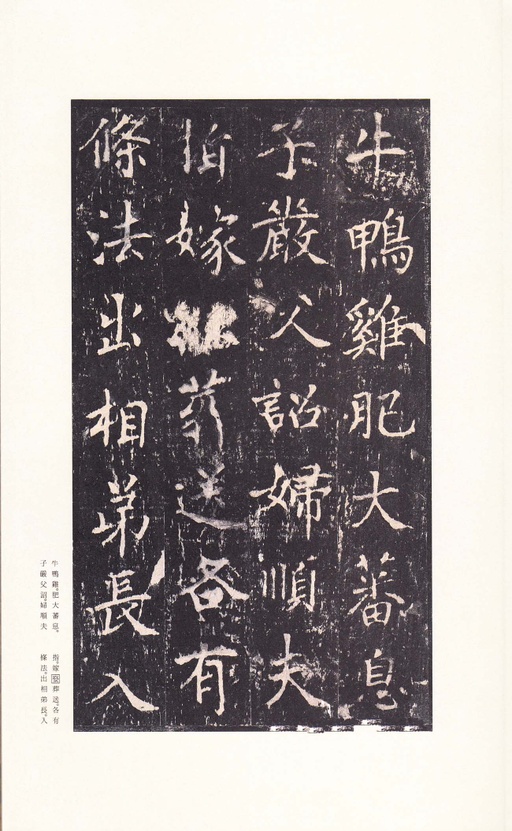 牛鴨雞肥大蕃息
子嚴父詔婦順夫
指嫁葬送各有
條法出相弟長入
牛鴨雞肥大蕃息。
子嚴父詔。婦順夫
指。嫁娶葬送。各有
條法。出相弟長。入